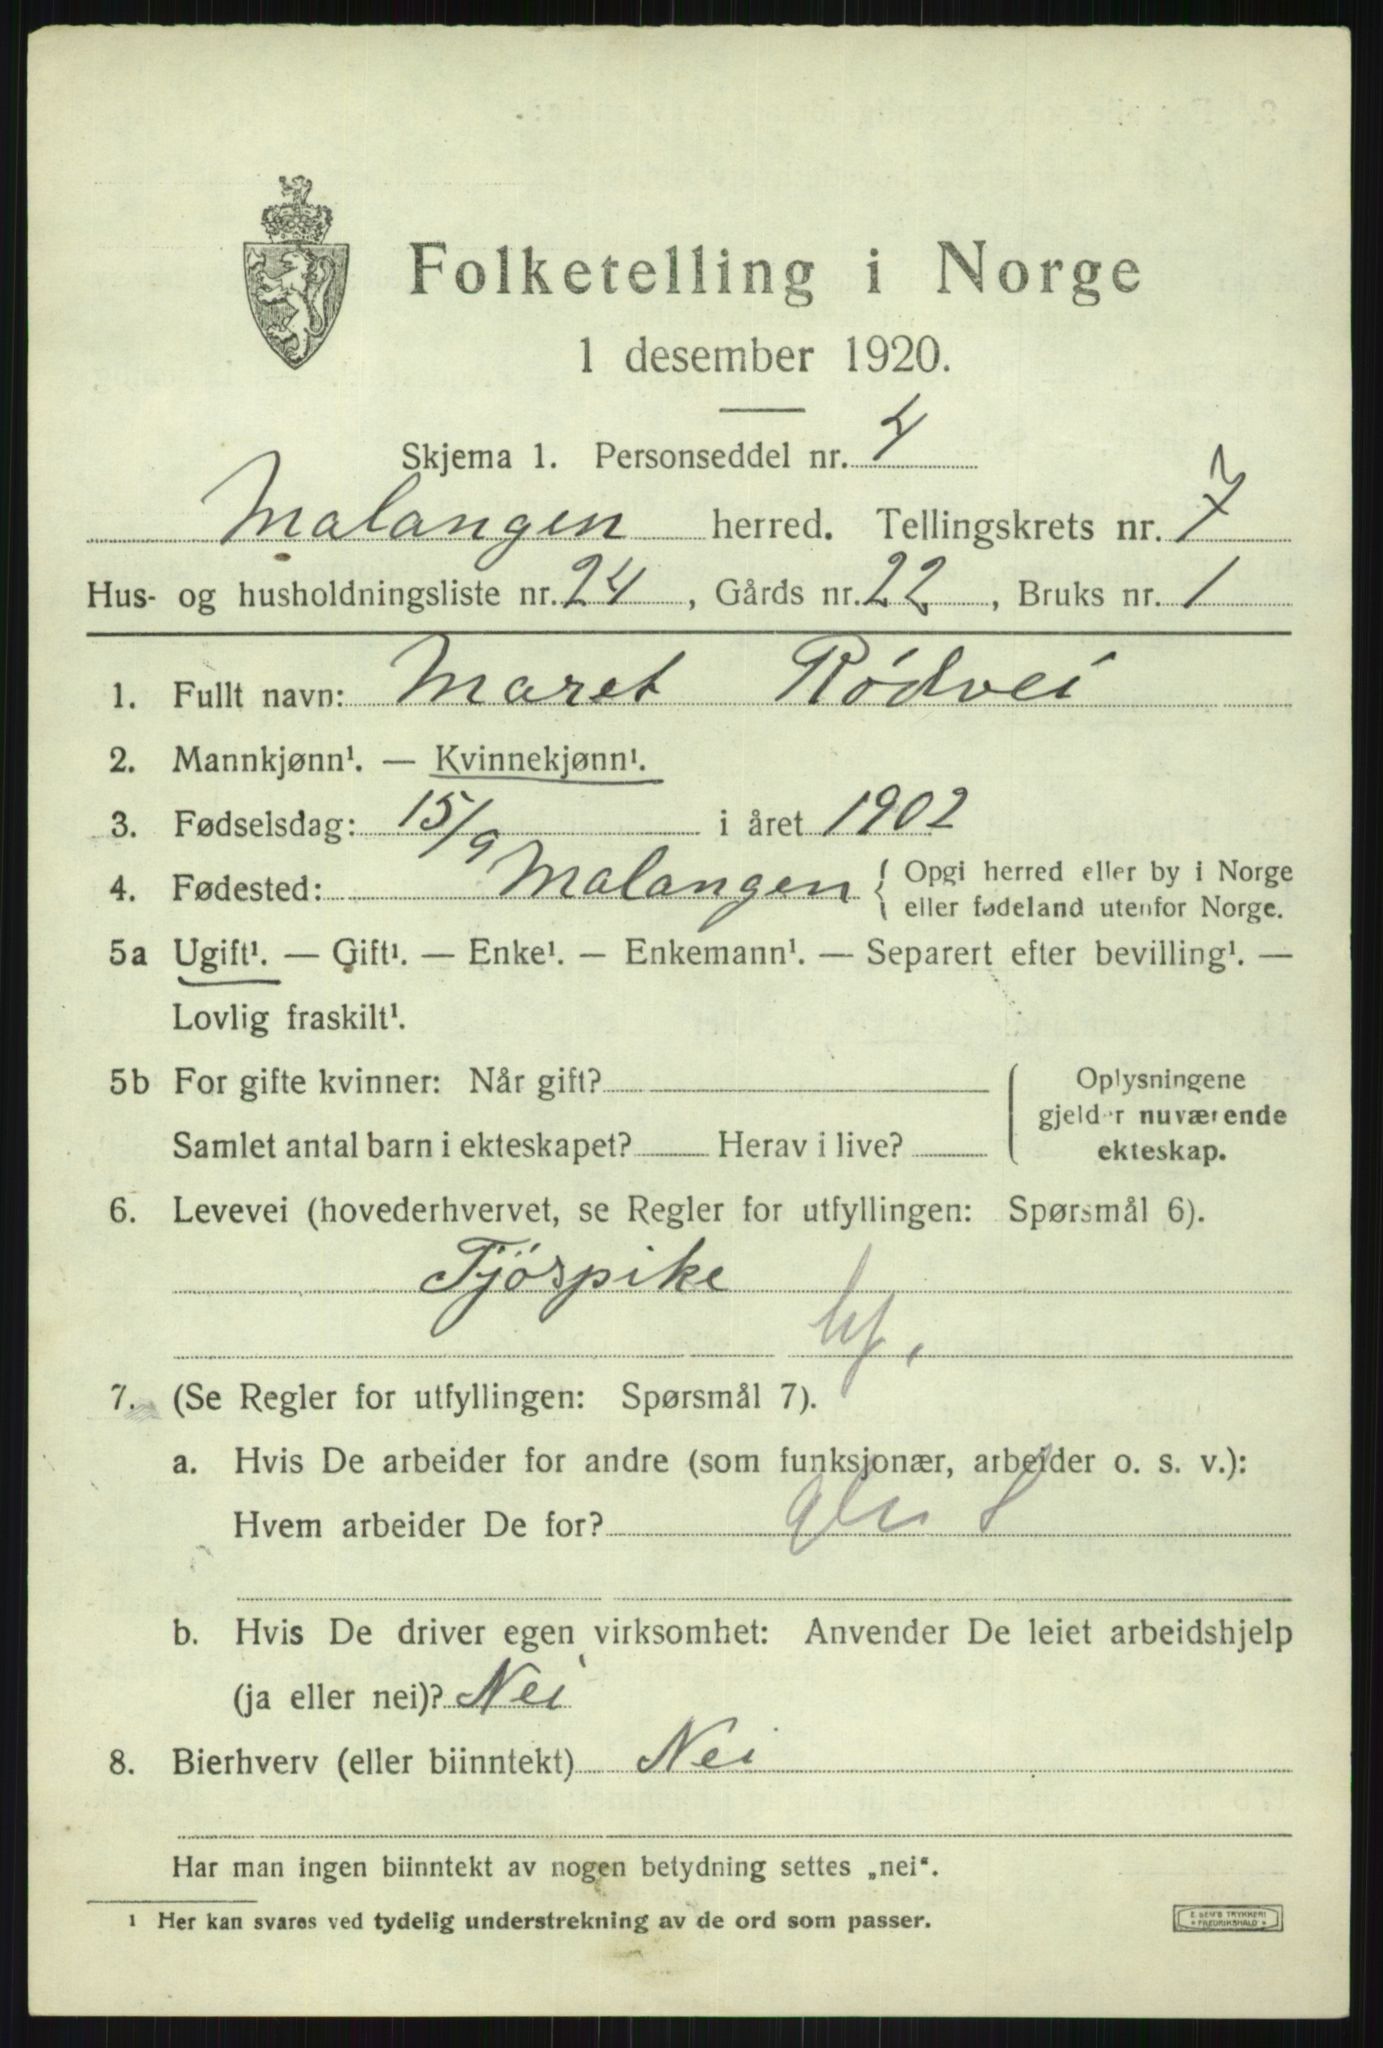 Folketelling i Norge
1 desember 1920.
Skjema 1. Personseddel nr. 4
Malangen herred. Tellingskrets nr. 7
Hus- og husholdningsliste nr. 24, Gårds nr. 22, Bruks nr. 1
1. Fullt navn: Maret Rödvei
2. Mannkjønn¹. — Kvinnekjønn¹.
3. Fødselsdag: 15/9 i året 1902
4. Fødested: Malangen { Opgi herred eller by i Norge
eller fødeland utenfor Norge.
5a Ugift¹. — Gift¹. — Enke¹. — Enkemann¹. — Separert efter bevilling¹. —
Lovlig fraskilt¹.
5b For gifte kvinner: Når gift?
Samlet antal barn i ekteskapet? Herav i live?
Oplysningene
gjelder nuværende
ekteskap.
6. Levevei (hovederhvervet, se Regler for utfyllingen: Spørsmål 6).
Tjöspike
7. (Se Regler for utfyllingen: Spørsmål 7).
a. Hvis De arbeider for andre (som funksjonær, arbeider o. s. v.):
Hvem arbeider De for?
b. Hvis De driver egen virksomhet: Anvender De leiet arbeidshjelp
(ja eller nei)? Nei
8. Bierhverv (eller biinntekt) Nei
Har man ingen biinntekt av nogen betydning settes „nei“.
¹ Her kan svares ved tydelig understrekning av de ord som passer.
E. SEM'S TRYKKERI
FREDRIKSHALD